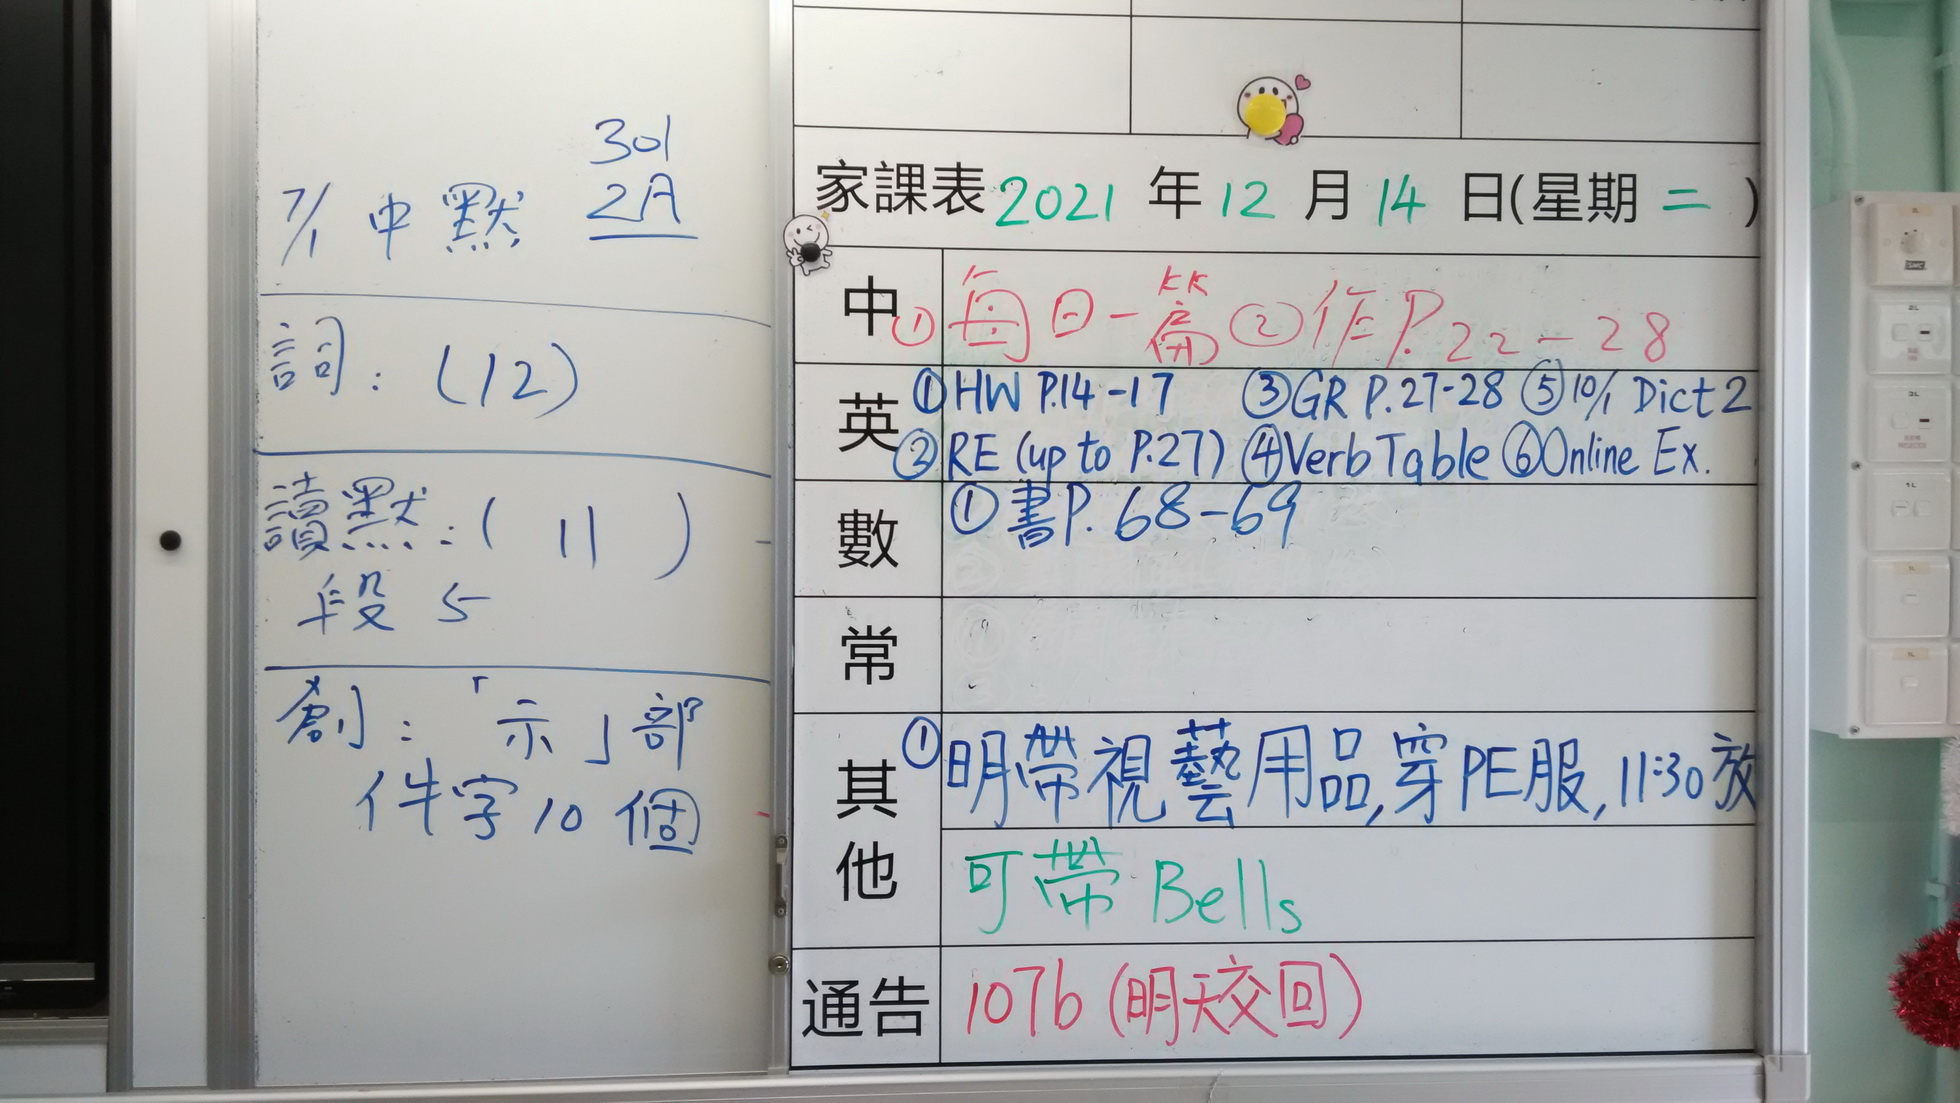 301
7/1 中默 2A
詞：(12)
讀默：( 11 )
段 5
創：「示」部
件字 10 個
家課表 2021 年 12 月 14 日(星期 二 )
中 ① 每日一篇 ② 作 P. 22 - 28
英 ① HW P.14-17 ③ GR P.27-28 ⑤ 10/1 Dict 2
② RE (up to P.27) ④ Verb Table ⑥ Online Ex.
數 ① 書P. 68-69
常
其他 ① 明帶視藝用品, 穿PE服, 11:30放
可帶 Bells
通告 107b (明天交回)